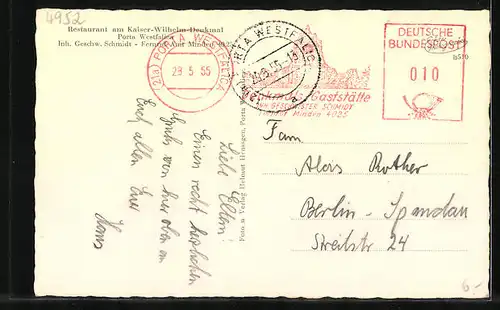 4952
Restaurant am Kaiser-Wilhelm-Denkmal
Porta Westfalica
Inh. Geschw. Schmidt - Fernruf Amt Minden
(21a) PORTA WESTFALICA
28.5.55
PORTA WESTFALICA
Denkmal-Gaststätte
INH. GESCHWISTER SCHMIDT
Telefon Minden 4025
DEUTSCHE
BUNDESPOST
010
Foto u. Verlag Helmut Heusgen, Porta
Liebe Eltern!
Einen recht herzlichen
Gruß von hier oben an
Euch allen Euer
Hans
Fam.
Alois Rother
Berlin-Spandau
Streitstr. 24
6,-